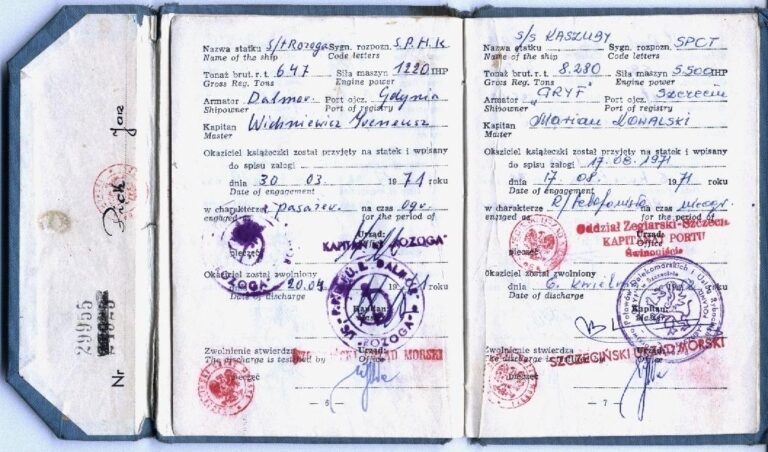 Pick Jan
Nr
29955
Nazwa statku S/t Rozoga Sygn. rozpozn. S.P.H.K
Name of the ship Code letters
Tonaż brut. r. t. 647 Siła maszyn 1220 IHP
Gross Reg. Tons Engine power
Armator Dalmor Port ojcz. Gdynia
Shipowner Port of registry
Kapitan Wichniewicz Ireneusz
Master
Okaziciel książeczki został przyjęty na statek i wpisany
do spisu załogi
dnia 30 03. 1971 roku
Date of engagement
w charakterze pasażer. na czas ogr.
engaged as for the period of
Urząd:
Office
KAPITAN "ROZOGA"
pieczęć
Okaziciel został zwolniony
dnia 20.04 19
Date of discharge
P.P.D. i U.R. "DALMOR"
"ROZOGA"
Kapitan:
Master
Zwolnienie stwierdza Urząd:
The discharge is testified by Office
URZĄD MORSKI
pieczęć
— 6 —
s/s KASZUBY
Nazwa statku Sygn. rozpozn. SPCT
Name of the ship Code letters
Tonaż brut. r. t. 8.280 Siła maszyn 5.500 IHP
Gross Reg. Tons Engine power
Armator "GRYF" Port ojcz. Szczecin
Shipowner Port of registry
Kapitan Marian KOWALSKI
Master
Okaziciel książeczki został przyjęty na statek i wpisany
do spisu załogi 17.08.1971
dnia 17 08. 1971 roku
Date of engagement
w charakterze R/telefonista na czas nieogr.
engaged as for the period of
Oddział Żeglarski-Szczecin
Urząd:
Office
KAPITANAT PORTU
Świnoujście
pieczęć
Okaziciel został zwolniony
dnia 6. kwietnia 19
Date of discharge
Kapitan:
Master
Zwolnienie stwierdza Urząd:
The discharge is testified by Office
SZCZECIŃSKI URZĄD MORSKI
pieczęć
— 7 —